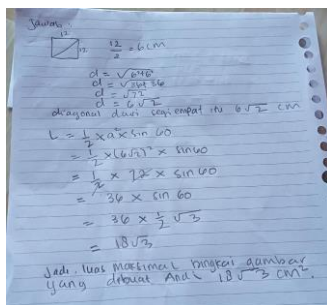 Jawab:
12
12
12/2 = 6 cm
d = √6²+6²
d = √36+36
d = √72
d = 6√2
diagonal dari segi empat itu 6√2 cm
L = 1/2 × a² × sin 60
= 1/2 × (6√2)² × sin 60
= 1/2 × 72 × sin 60
= 36 × sin 60
= 36 × 1/2 √3
= 18√3
Jadi, luas maksimal bingkai gambar
yang dibuat Andi 18√3 cm².